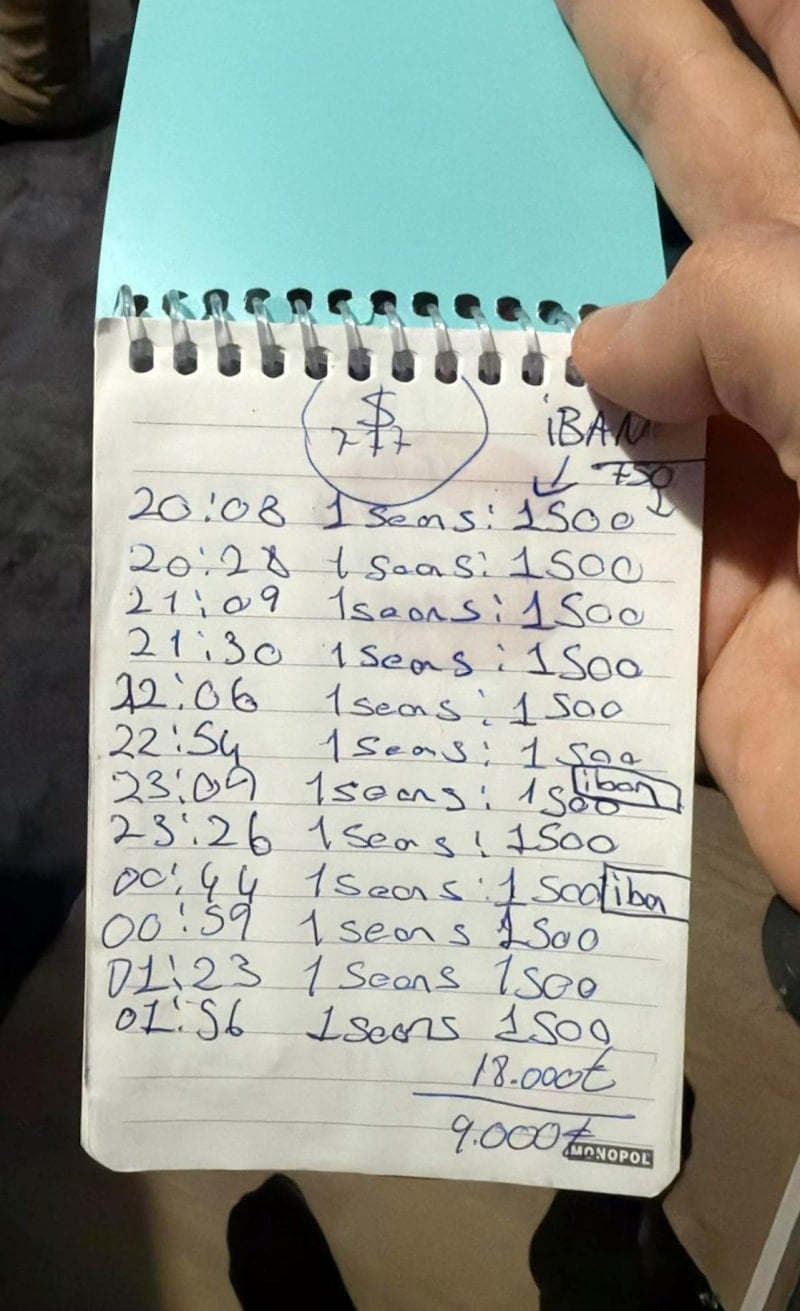 $
777
iBAN
750
20:08 1 Seans: 1500
20:28 1 Seans: 1500
21:09 1seans: 1500
21:30 1 Seans: 1500
22:06 1seans: 1500
22:54 1 Seans: 1500
23:09 1seans: 1500 iban
23:26 1 Seans: 1500
00:44 1 Seans: 1500 iban
00:59 1 seans 1500
01:23 1 Seans 1500
01:56 1 seans 1500
18.000₺
9.000₺
MONOPOL